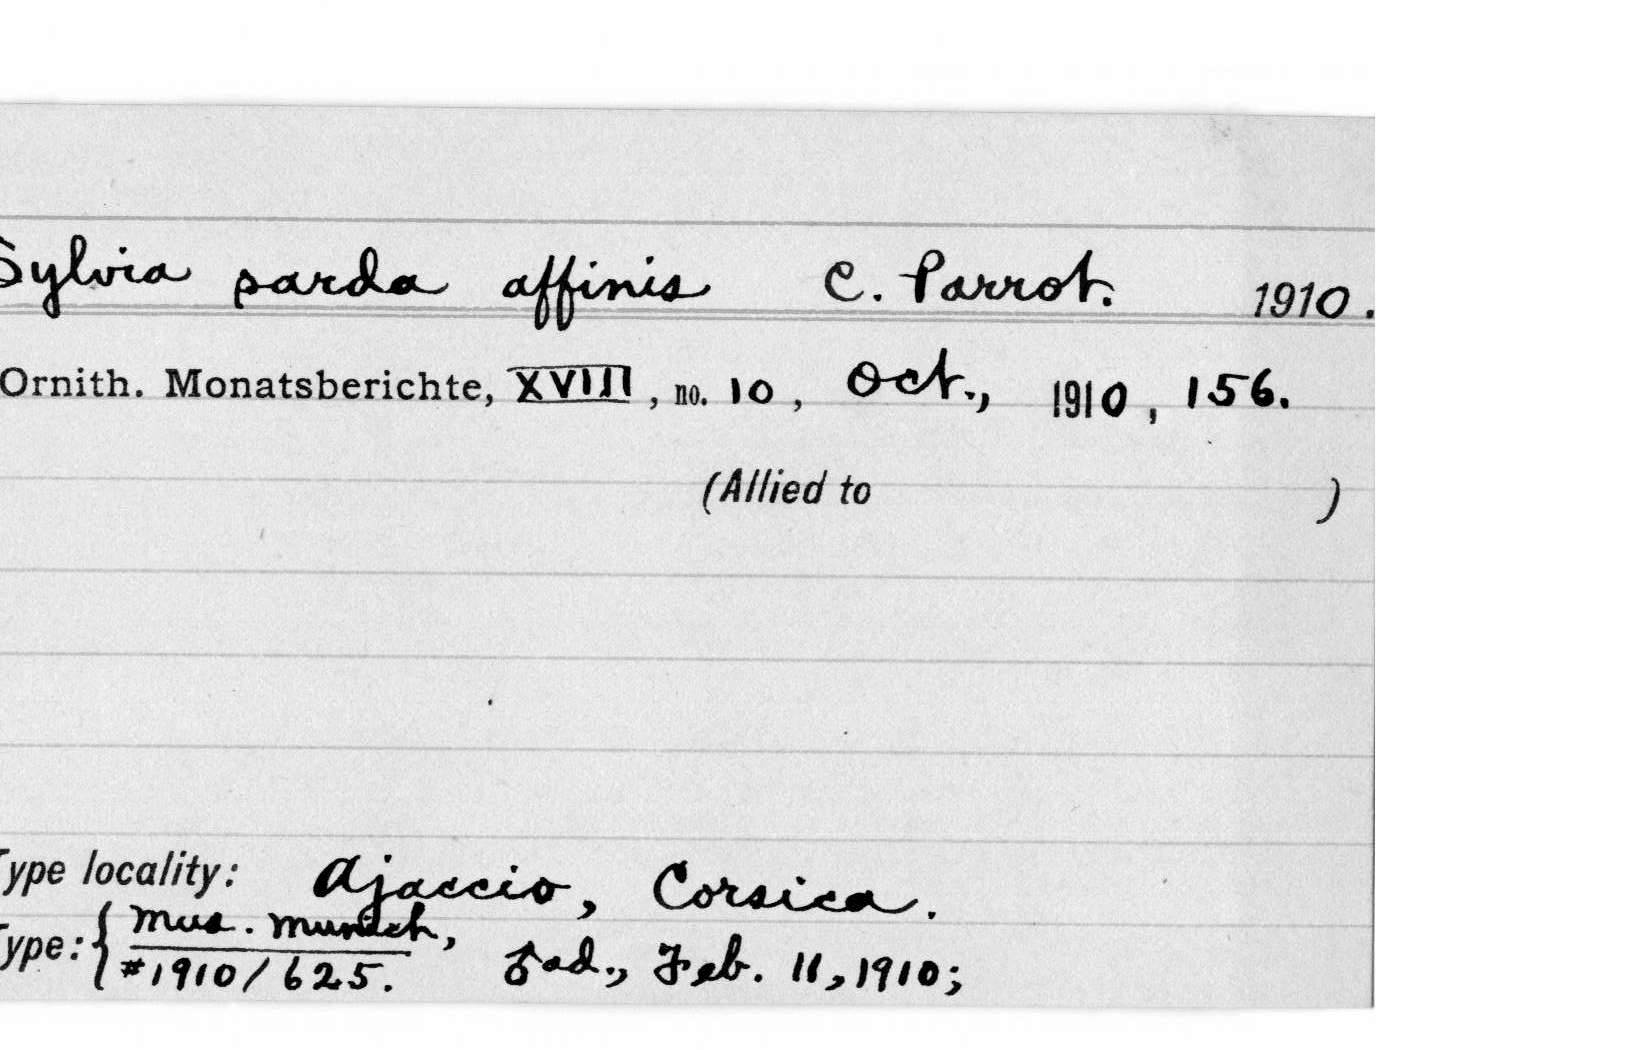 Sylvia sarda affinis C. Parrot. 1910.
Ornith. Monatsberichte, XVIII, no. 10, Oct., 1910, 156.
(Allied to )
Type locality: Ajaccio, Corsica.
Type: { Mus. Munich,
#1910/625. ♂ad., Feb. 11, 1910;